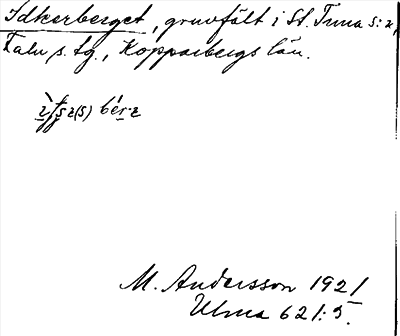 Idkerberget, gruvfält i St. Tuna s:n,
Falu s. tg., Kopparbergs län.
M. Andersson 1921
Ulma 621:5.